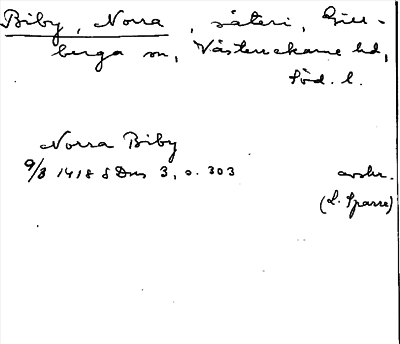 Biby, Norra, säteri, Gill-
berga sn, Västerrekarne hd,
Söd. l.
Norra Biby
9/3 1418 SDns 3, s. 303 avskr.
(L. Sparre)